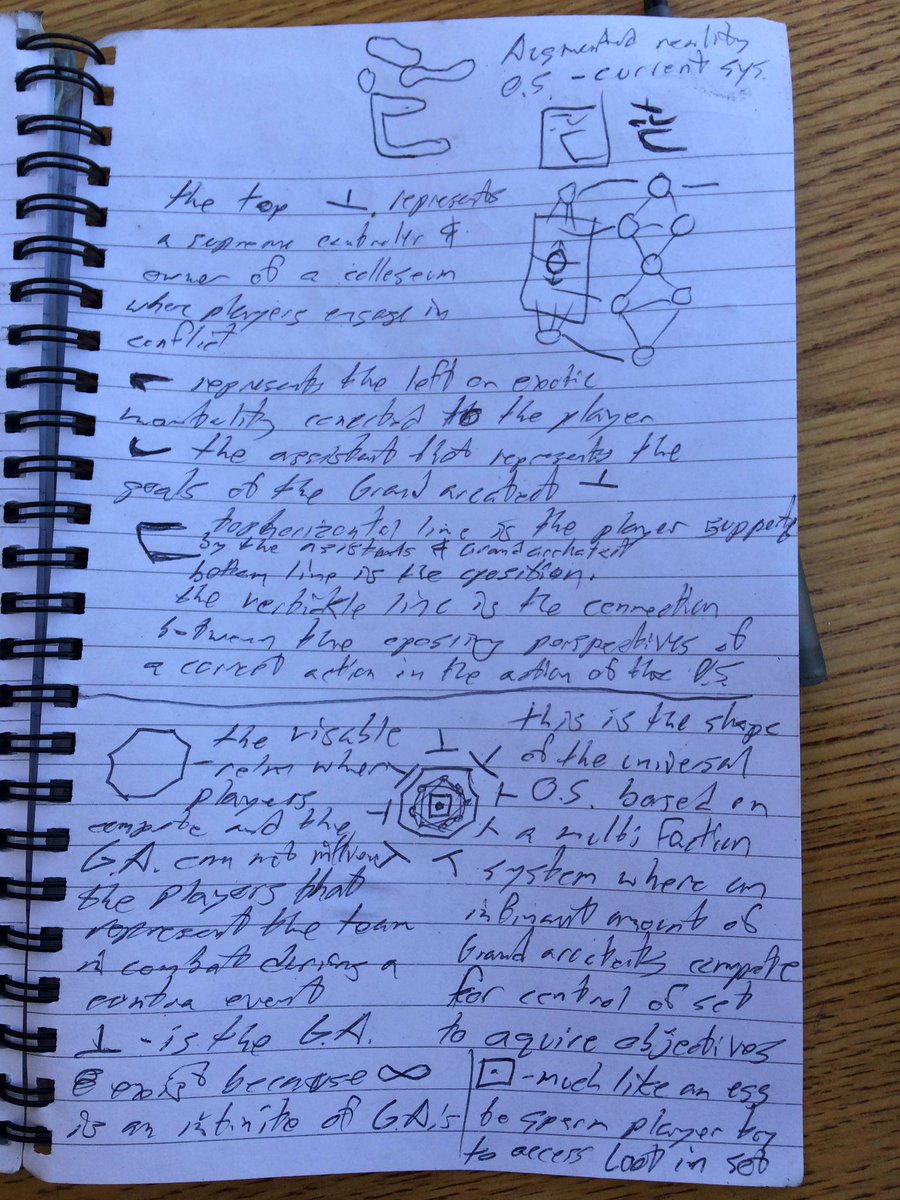 Augmented reality
O.S. - current sys.
the top ⊥. represents
a supreme controler &
owner of a colleseum
where players engage in
conflict
represents the left or exotic
conected to the player
the assistant that represents the
goals of the Grand arcatect ⊥
top horizontal line is the player support
by the assistants & Grand archatect
bottom line is the oposition.
the vertickle line is the connection
between the oposing perspectives of
a correct action in the action of the O.S.
the visable
- relm where
players
compete and the
G.A. can not
the players that
represent the team
in combat during a
contra event
⊥ - is the G.A.
8 exist because ∞
is an infinite of G.A.'s
this is the shape
of the universal
O.S. based on
a multi Faction
system where an
amount of
Grand arcitects compete
for control of set
to aquire objectives
⊡ - much like an egg
sperm player try
to access loot in set